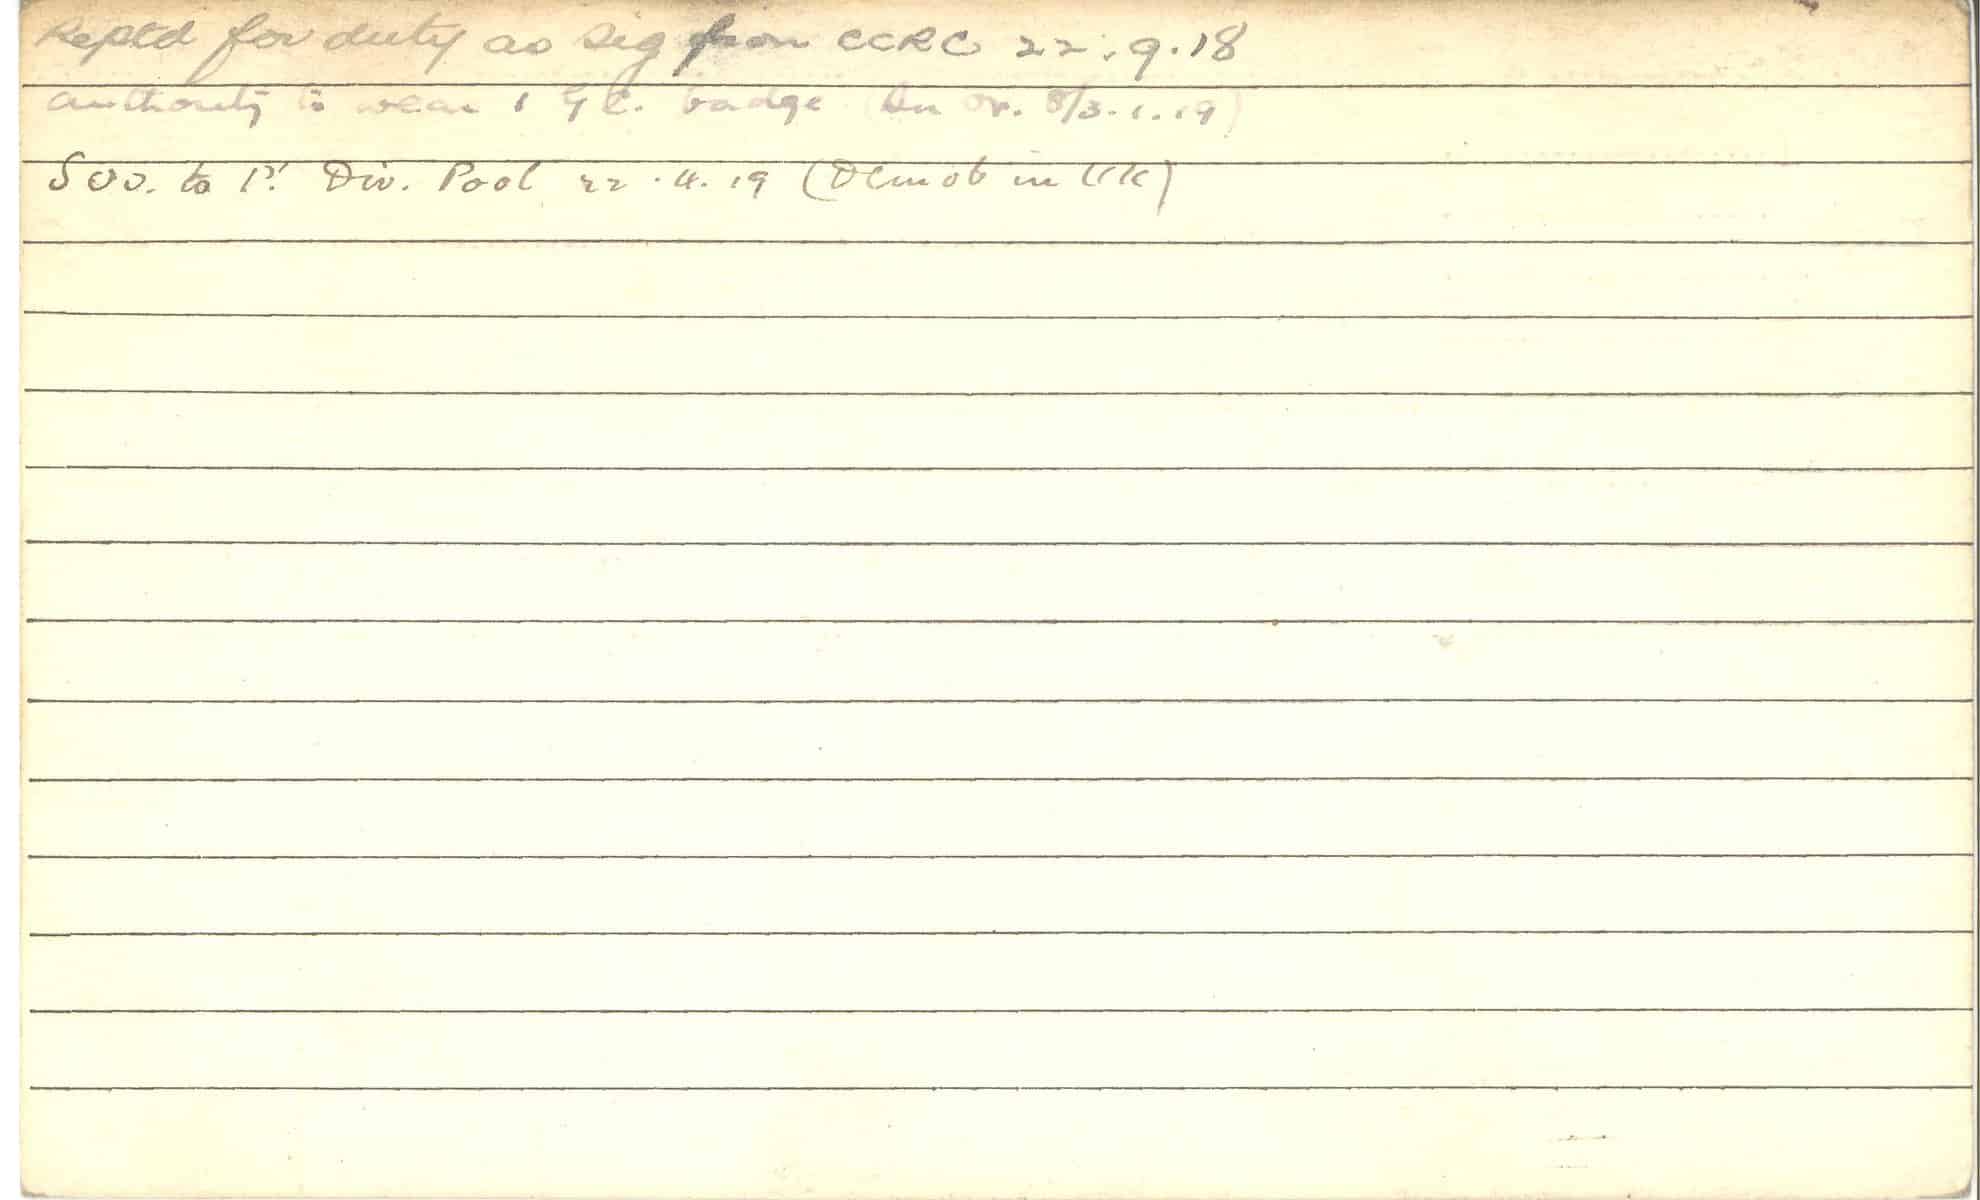 Reptd for duty as Sig from CCRC 22.9.18
Authority to wear 1 G C. badge (Bn Or. 8/3.1.19)
SOS. to 1st Div. Pool 22.4.19 (Demob in UK)